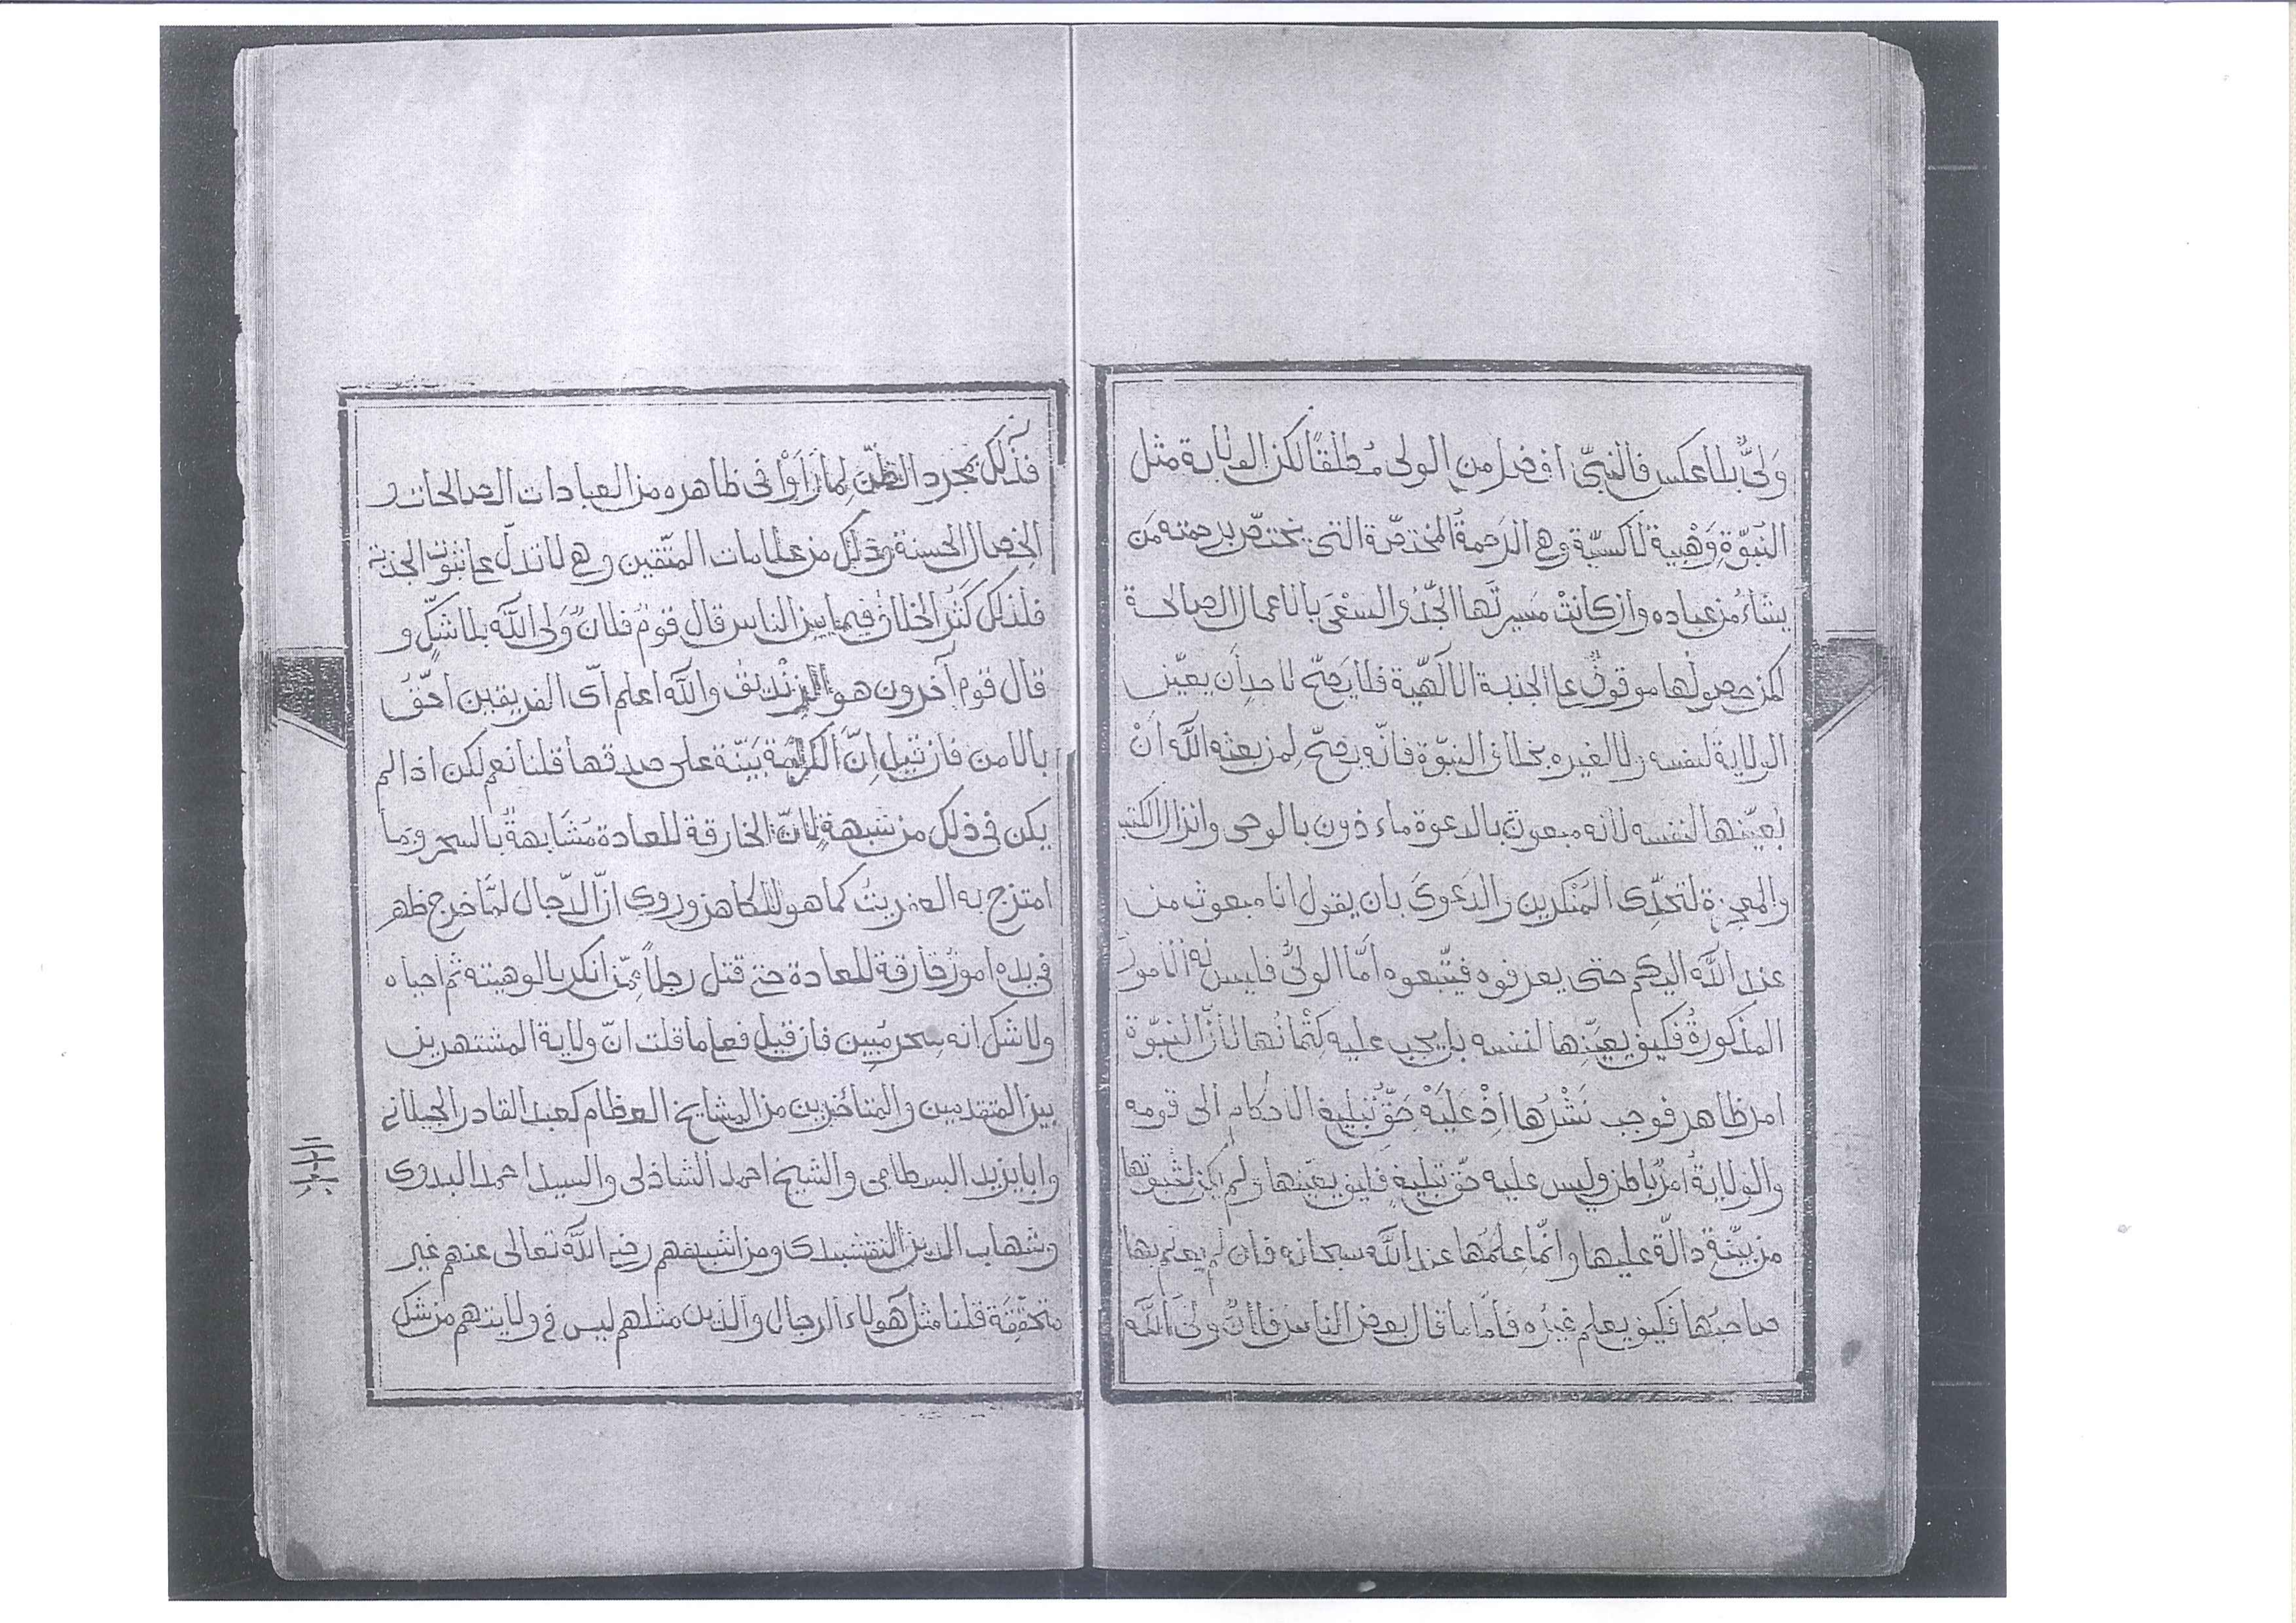 وَلِىٌّ بلا عكس فالنبىّ افضل من الولى مُطلقًا لكن الولاية مثل
النبوّةِ وَهْبِية لا كسبيّة وهى الرَحمةُ المختصّة التى يختصّ برحمته مَن
يشاءُ من عباده وان كانتْ مَسيرتَها الجِّدُ والسَعْىَ بالاعمال الصالحة
لكن حصولُها موقوفٌ على الجذبة الالَهيّة فلا يَصحّ لاحدٍ أن يعيّن
الولايةَ لنفسه ولا لغيره بخلاف النبوّة فانّه يصحّ لِمن بعثه اللّه انْ
يُعيّنها لنفسه لأنه مبعوث بالدعوة ماءذون بالوحى وانزال الكتب
والمعجزة لتحدِّى المُنْكرين والدَعوىَ بان يقول انا مبعوث من
عند اللّه اليكم حتى يعرفوه فيتّبعوه امّا الولىُّ فليس له الامورُ
المذكورةُ فكيف يعيّنها لنفسه بل يجب عليه كِتْمانُها لأنّ النبوّة
امر ظاهر فوجب نَشْرُها اِذْ عَلَيْه حَقّ تبليغ الاحكام الى قومه
والولايةُ امرٌ باطن وليس عليه حّق تبليغٍ فكيف يعيّنها ولم يكن لثبوتها
من بيّنةٍ دالّة عليها وانّما عِلمُها عند اللّه سبحانه فان لم يعلم بها
صاحبُها فكيف يعلم غيرُه فامّا ما قال بعض الناس فلانٌ ولىّ اللّه
فذلك بمجرد الظنّ لِما رَاَوْا فى ظاهره من العبادات الصالحات و
الخصال الحسنة وذلك من علامات المتّقين وهى لا تدلّ على ثبوت الجذبة
فلذلك كَثُر الخلاف فيما بين الناس قال قومٌ فلانٌ وَلى اللّه بلا شكٍّ و
قال قوم آخرون هو الزنديق واللّه اعلم اىّ الفريقين احقّ
بالامن فان قيل اِنّ الكرامة بَيّنة على صدقها قلنا نعم لكن اذا لم
يكن فى ذلك من شبهةٍ لِانّ الخارقة للعادة مُشَابهةٌ بالسحر وما
امتزج به العفريتُ كما هو للكاهن وروى انّ الدّجال لمّا خرج ظهر
فى يده امورٌ خارقة للعادة حتى قتل رجلاً ممّن انكر بالوهيته ثم احياه
ولا شك انه سِحر مُبين فان قيل فعلى ما قلت انّ ولاية المشتهرين
بين المتقدمين والمتاءخرين من المشايخ العظام كعبد القادر الجيلانى
وابا يزيد البسطامى والشيخ احمد الشاذلى والسيد احمد البدوى
وشهاب الدين النقشبندى ومن اشبههم رضى اللّه تعالى عنهم غير
متحقِّقة قلنا مثل هولاء الرجال والذين مثلهم ليس فى ولايتهم من شك